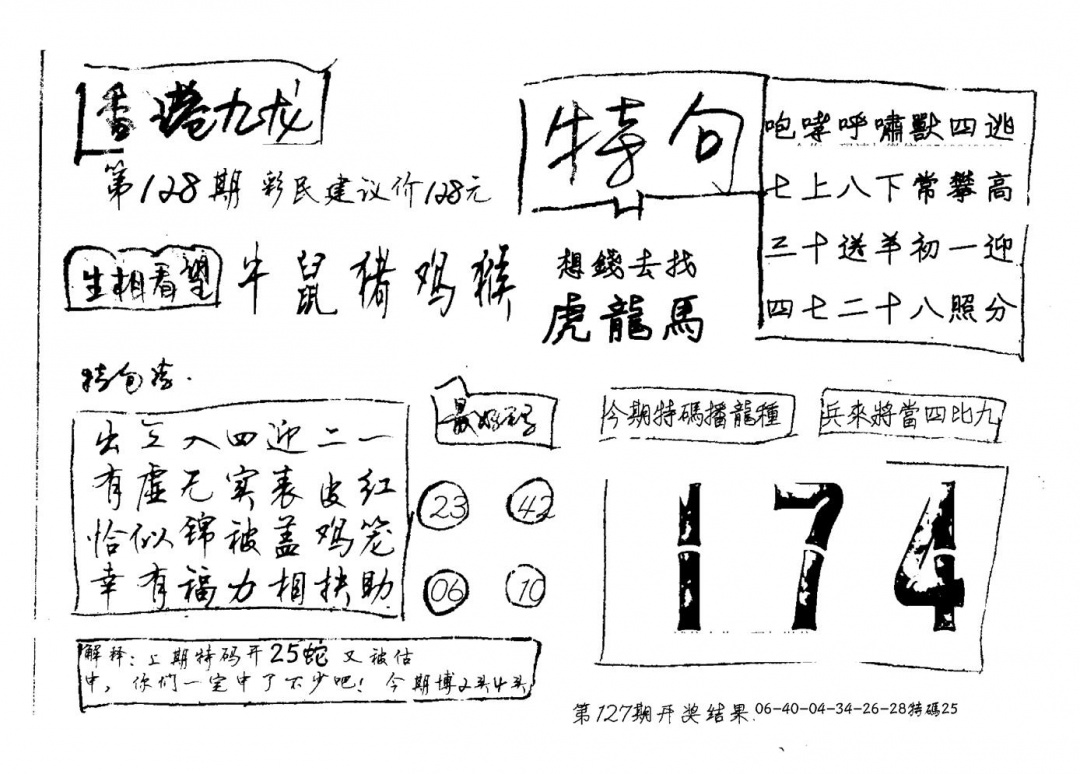 香港九龙
第128期 彩民建议价128元
生相看望 牛鼠猪鸡猴
特句
想錢去找
虎龍馬
咆哮呼嘯獸四逃
七上八下常攀高
三十送羊初一迎
四七二十八照分
出入四迎二一
有虚无实表皮红
恰似锦被盖鸡笼
幸有福力相扶助
23 42
06 10
今期特碼播龍種
兵來將當四比九
174
解释：上期特码开25蛇又被估
中，你们一定中了不少吧！今期博2头4头
第127期开奖结果.06-40-04-34-26-28特碼25